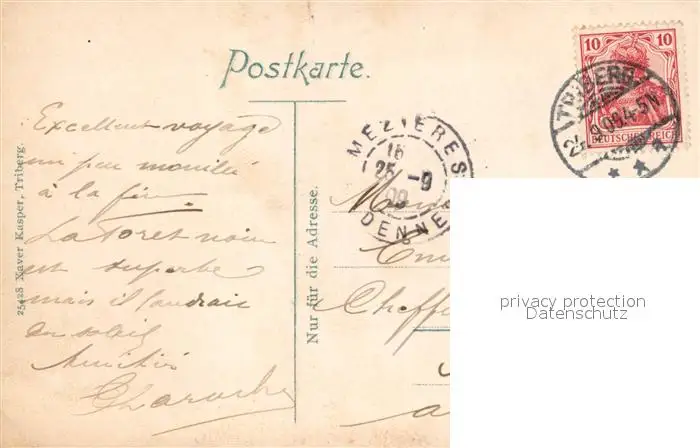 Postkarte.
Excellent voyage
un peu mouillé
à la fin
La Foret noire
est superbe
mais il faudrait
du soleil
Amitiés
25428 Xaver Kasper, Triberg.
Nur für die Adresse.
MEZIERES
15
25 -9
09
DENNE
10 10
DEUTSCHES REICH
TRIBERG
privacy protection
Datenschutz